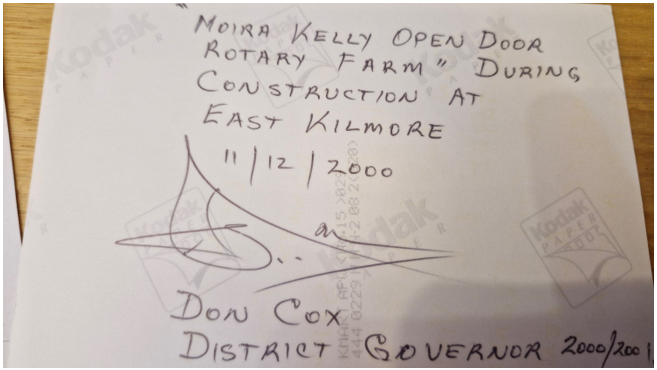 "MOIRA KELLY OPEN DOOR
ROTARY FARM" DURING
CONSTRUCTION AT
EAST KILMORE
11/12/2000
DON COX
DISTRICT GOVERNOR 2000/2001
Kodak
PAPER
Kodak
PAPER
Kodak
Kodak
PAPER